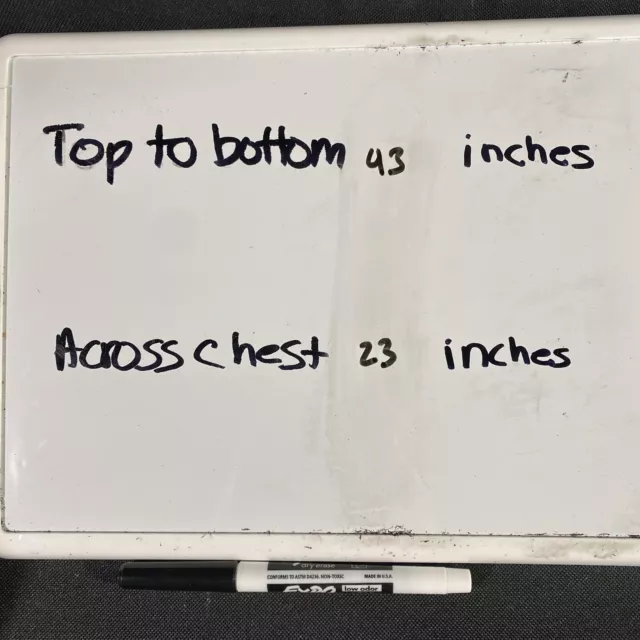 Top to bottom 43 inches
Across chest 23 inches
dry erase
CONFORMS TO ASTM D4236, NON-TOXIC MADE IN U.S.A.
EXPO low odor